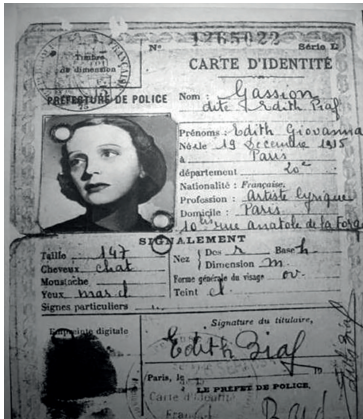 Timbre
de dimension
N° 1265022 Série L
CARTE D'IDENTITÉ
PRÉFECTURE DE POLICE
Nom : Gassion
dite Edith Piaf
Prénoms : Edith Giovanna
Né le 19 Décembre 1915
à Paris
département 20e
Nationalité : Française.
Profession : Artiste Lyrique
Domicile : Paris
rue Anatole de la Forge
SIGNALEMENT
Taille 147
Cheveux chat
Moustache
Yeux mar.
Signes particuliers
Nez Dos r Base h
Dimension m.
Forme générale du visage ov.
Teint cl
Empreinte digitale
Signature du titulaire,
Edith Piaf
Paris, le
LE PRÉFET DE POLICE,
Carte d'identité